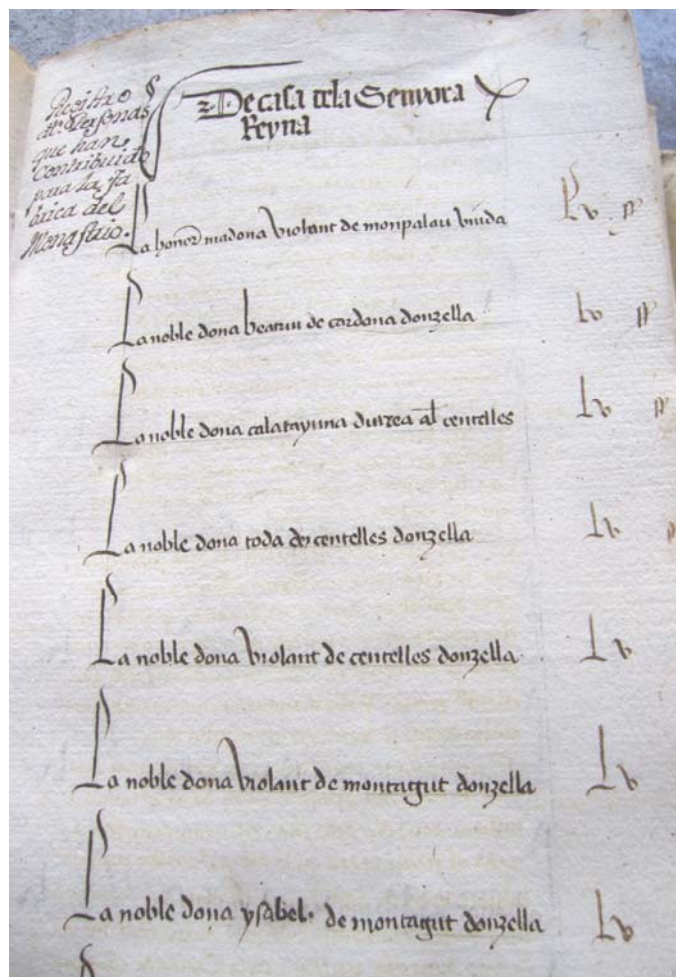 De casa dela Senyora
Reyna
Registro
de Personas
que han
Contribuido
para la fa
brica del
Monastrio.
La honor madona violant de monpalau viuda
La noble dona beatriu de cardona donzella lv
La noble dona calatayuna durrea al centelles lv
La noble dona toda de centelles donzella lv
La noble dona violant de centelles donzella lv
La noble dona violant de montagut donzella lv
La noble dona ysabel de montagut donzella lv